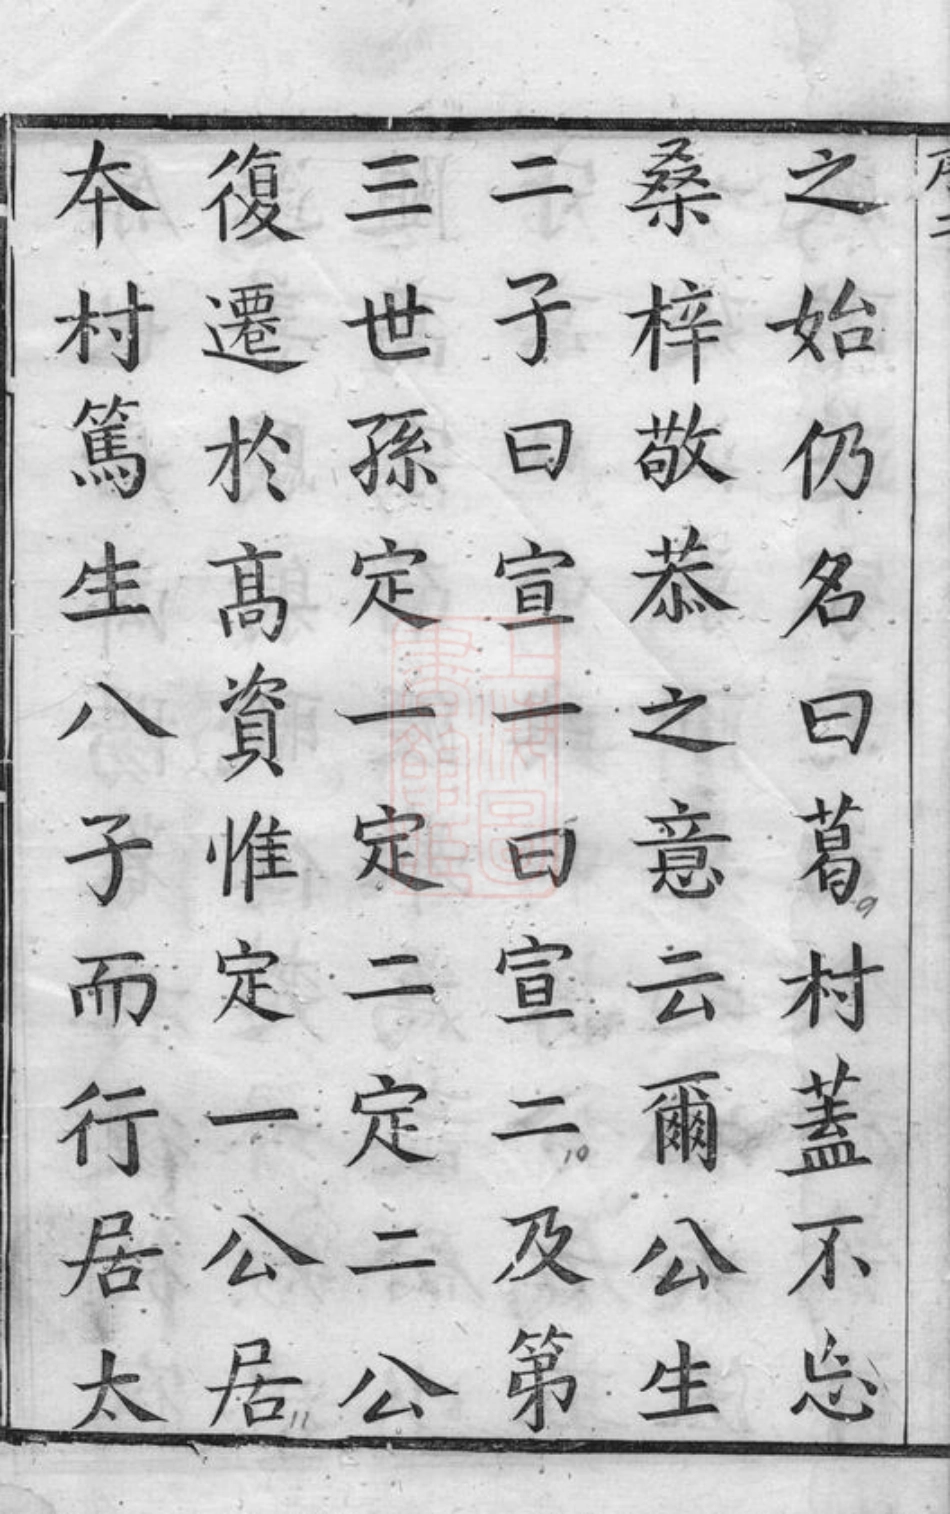 之始仍名曰葛村蓋不忘
桑梓敬恭之意云爾公生
二子曰宣一曰宣二及第
三世孫定一定二定二公
復遷於髙資惟定一公居
本村篤生八子而行居太
9
10
11